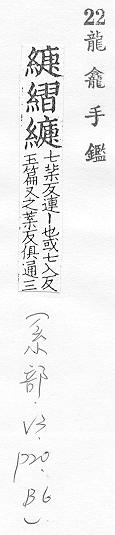 22 龍龕手鑑
七枼反連丨也或七入反
玉篇又之葉反俱通三
(糸部．V3．P20．B6)